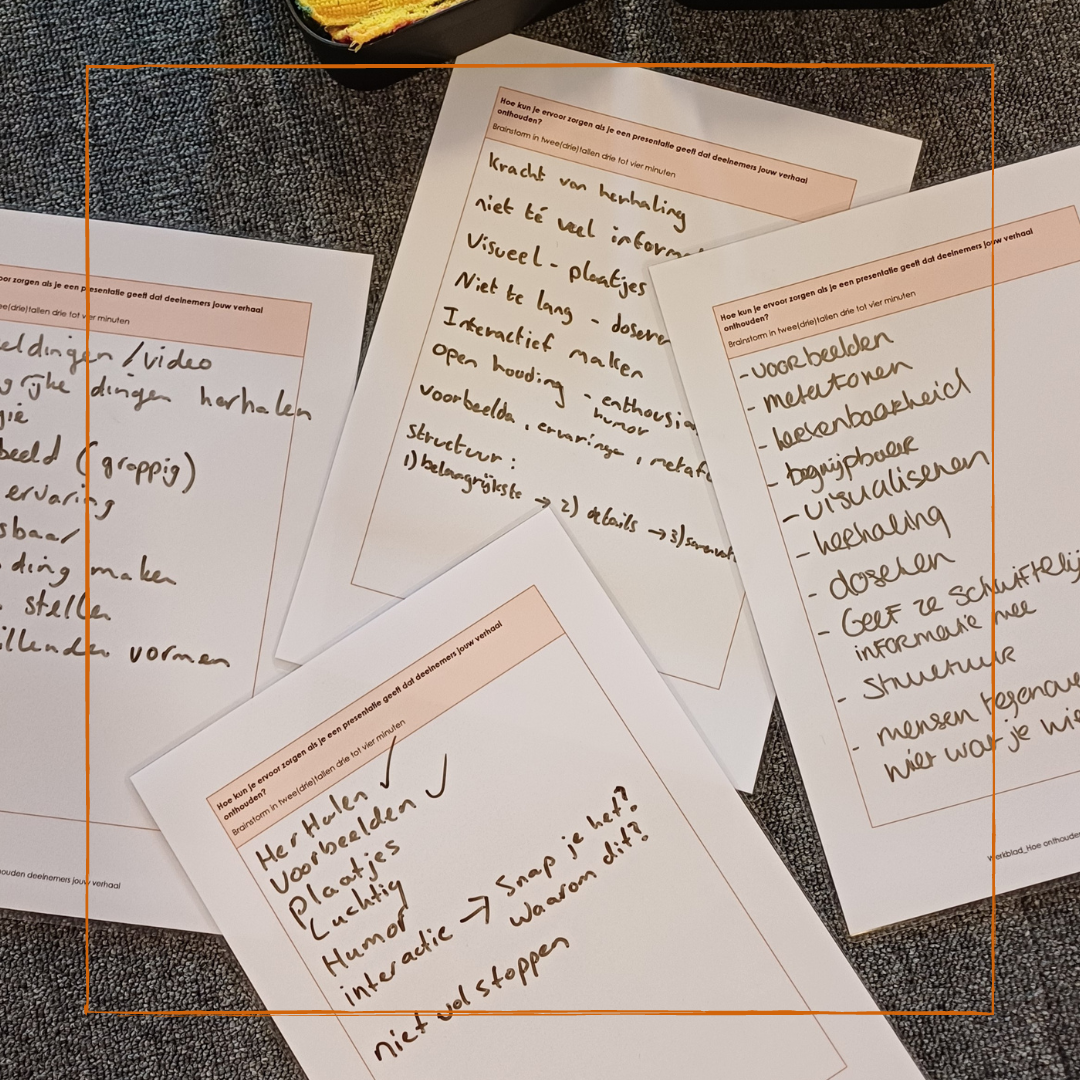 Hoe kun je ervoor zorgen als je een presentatie geeft dat deelnemers jouw verhaal
onthouden?
Brainstorm in twee(drie)tallen drie tot vier minuten
Kracht van herhaling
niet té veel inform
Visueel - plaatjes
Niet te lang - dosere
Interactief maken
open houding - enthousia
humor
voorbeelde, ervaringe, metaf
structuur:
1) belangrijkste → 2) details → 3)
oor zorgen als je een presentatie geeft dat deelnemers jouw verhaal
ee(drie)tallen drie tot vier minuten
eldingen / video
grijke dingen herhalen
gie
beeld (grappig)
ervaring
sbaar
ding maken
stellen
illenden vormen
ouden deelnemers jouw verhaal
Hoe kun je ervoor zorgen als je een presentatie geeft dat deelnemers jouw verhaal
onthouden?
Brainstorm in twee(drie)tallen drie tot vier minuten
- voorbeelden
- metaforen
- herkenbaarheid
- begrijpbaar
- visualiseren
- herhaling
- doseren
- Geef ze schriftelij
informatie mee
- Structuur
- mensen tegenove
niet wat je wi
Werkblad_Hoe onthouden
Hoe kun je ervoor zorgen als je een presentatie geeft dat deelnemers jouw verhaal
onthouden?
Brainstorm in twee(drie)tallen drie tot vier minuten
Herhalen ✓
Voorbeelden ✓
Plaatjes
Luchtig
Humor
interactie → Snap je het?
waarom dit?
niet vol stoppen